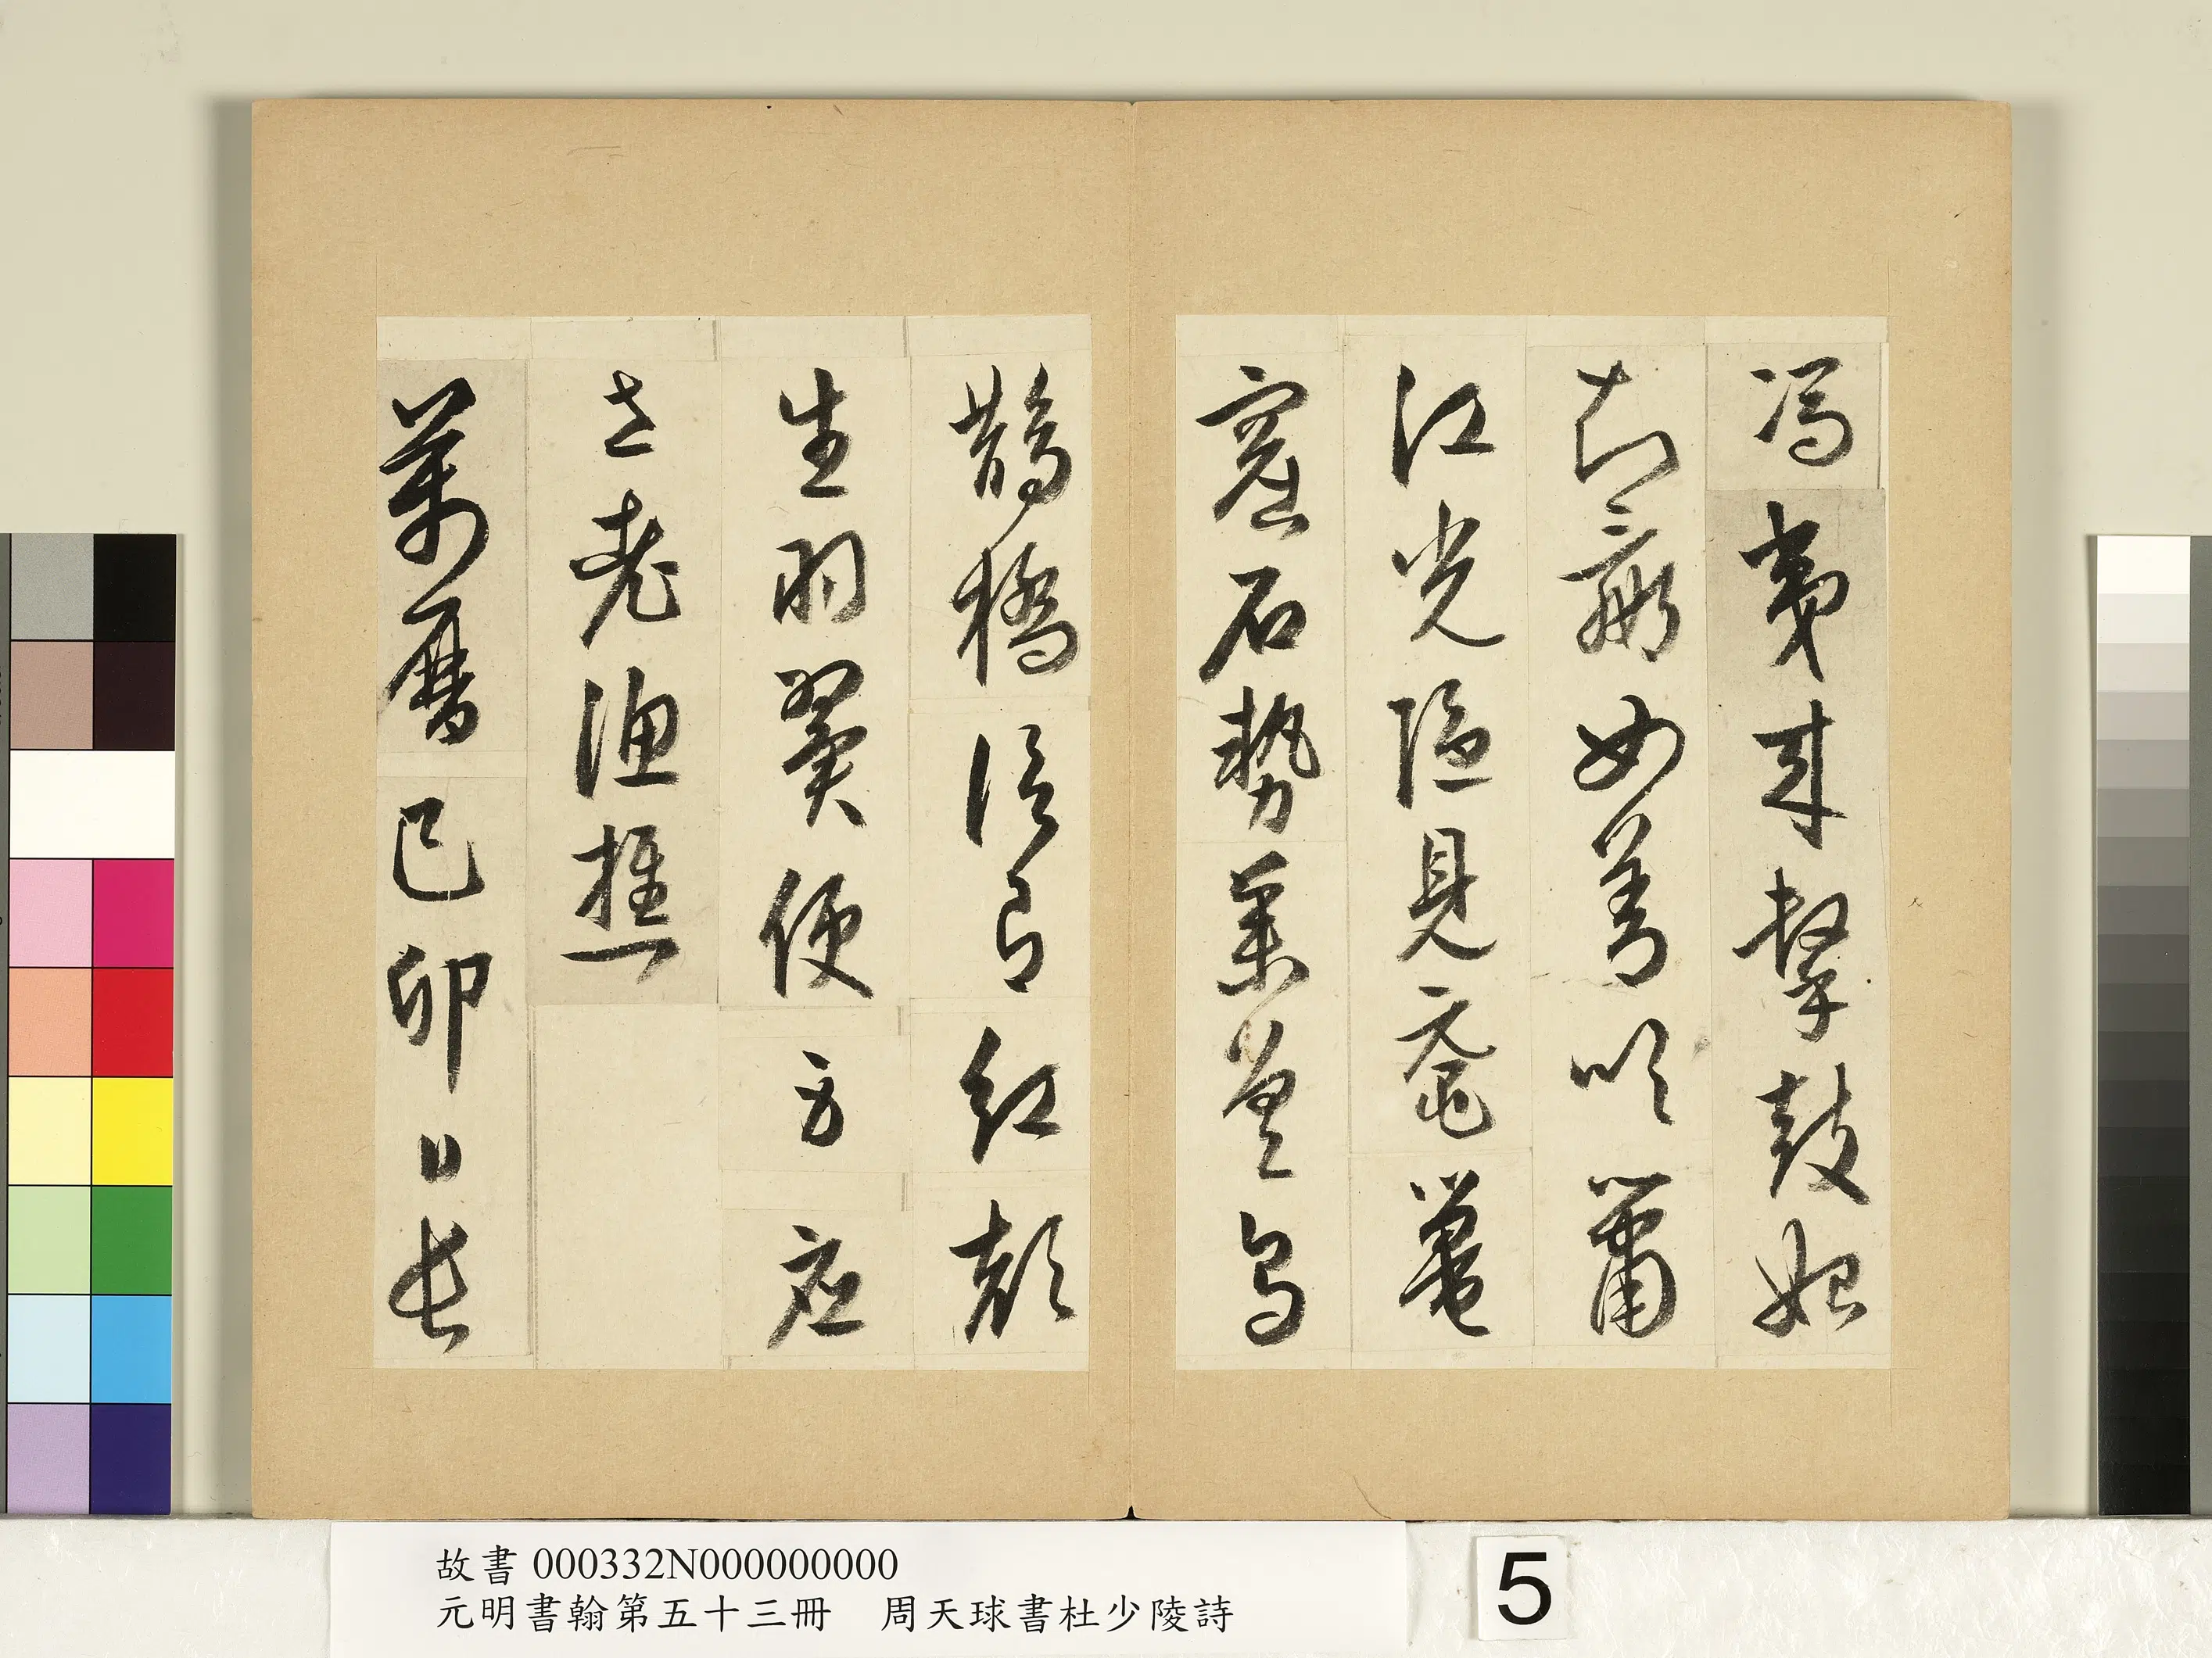 馮夷来擊鼓始
知嬴女善吹簫
江光隱見黿鼉
窟石勢參差烏
鵲橋紅顏
生羽翼便應
老漁樵
萬曆己卯日長
故書 000332N000000000
元明書翰第五十三冊 周天球書杜少陵詩
5